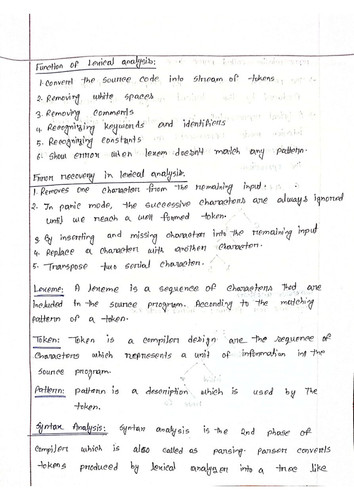 Function of Lexical analysis:
1. Convert the source code into stream of tokens
2. Removing white spaces
3. Removing comments
4. Recognizing keywords and identifiers
5. Recognizing constants
6. Show error when lexem doesn't match any pattern.
Error recovery in lexical analysis.
1. Removes one character from the remaining input.
2. In panic mode, the successive characters are always ignored
until we reach a well formed token.
3. By inserting and missing character into the remaining input
4. Replace a character with another character.
5. Transpose two serial character.
Lexeme: A lexeme is a sequence of characters that are
included in the source program. According to the matching
pattern of a token.
Token: Token is a compilers design are the sequence of
characters which represents a unit of information in the
source program.
Pattern: pattern is a description which is used by The
token.
Syntax Analysis: Syntax analysis is the 2nd phase of
compiler which is also called as parsing. parser converts
tokens produced by lexical analyzer into a tree like